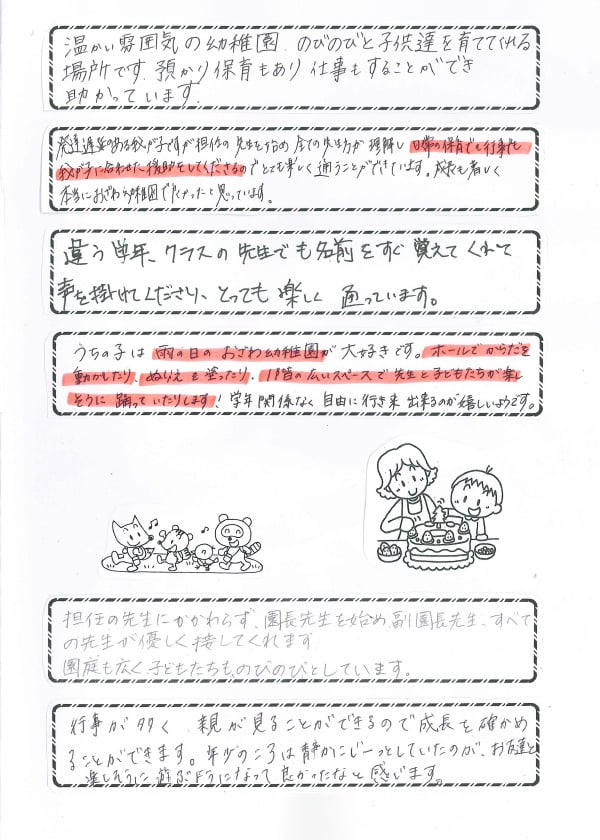 温かい雰囲気の幼稚園、のびのびと子供達を育ててくれる
場所です。預かり保育もあり仕事もすることができ
助かっています。
発達遅延のある我が子ですが担任の先生を始め全ての先生方が理解し日常の保育でも行事でも
我が子に合わせた援助をしてくださるのでとても楽しく通うことができています。成長も著しく
本当におざわ幼稚園で良かったと思っています。
違う学年、クラスの先生でも名前をすぐ覚えてくれて
声を掛けてくださり、とっても楽しく通っています。
うちの子は雨の日のおざわ幼稚園が大好きです。ホールでからだを
動かしたり、ぬりえを塗ったり、1階の広いスペースで先生と子どもたちが楽し
そうに踊っていたりします！学年関係なく自由に行き来出来るのが嬉しいようです。
担任の先生にかかわらず、園長先生を始め、副園長先生、すべて
の先生が優しく接してくれます
園庭も広く、子どもたちものびのびとしています。
行事が多く、親が見ることができるので成長を確かめ
ることができます。年少のころは静かにじーっとしていたのが、お友達と
楽しそうに遊ぶようになって良かったなと感じます。